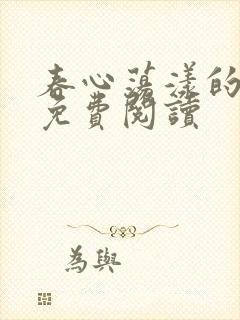 春心蕩漾的
免費閱讀
為與